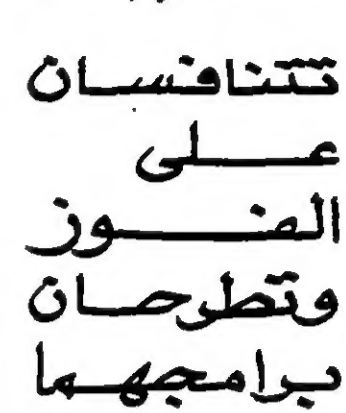 تتنافسان
على
الفوز
وتطرحان
برامجهما